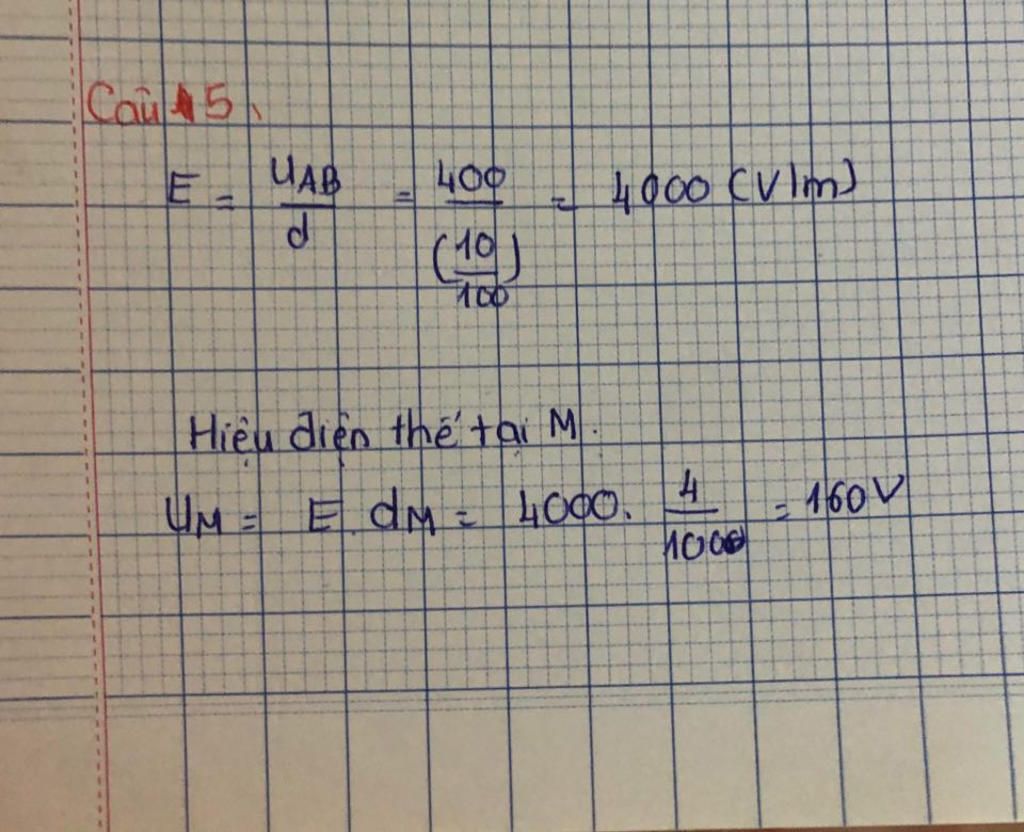 Câu 5.
E = U_AB / d = 400 / (10/100) = 4000 (V/m)
Hiệu điện thế tại M.
U_M = E.d_M = 4000. 4/1000 = 160V